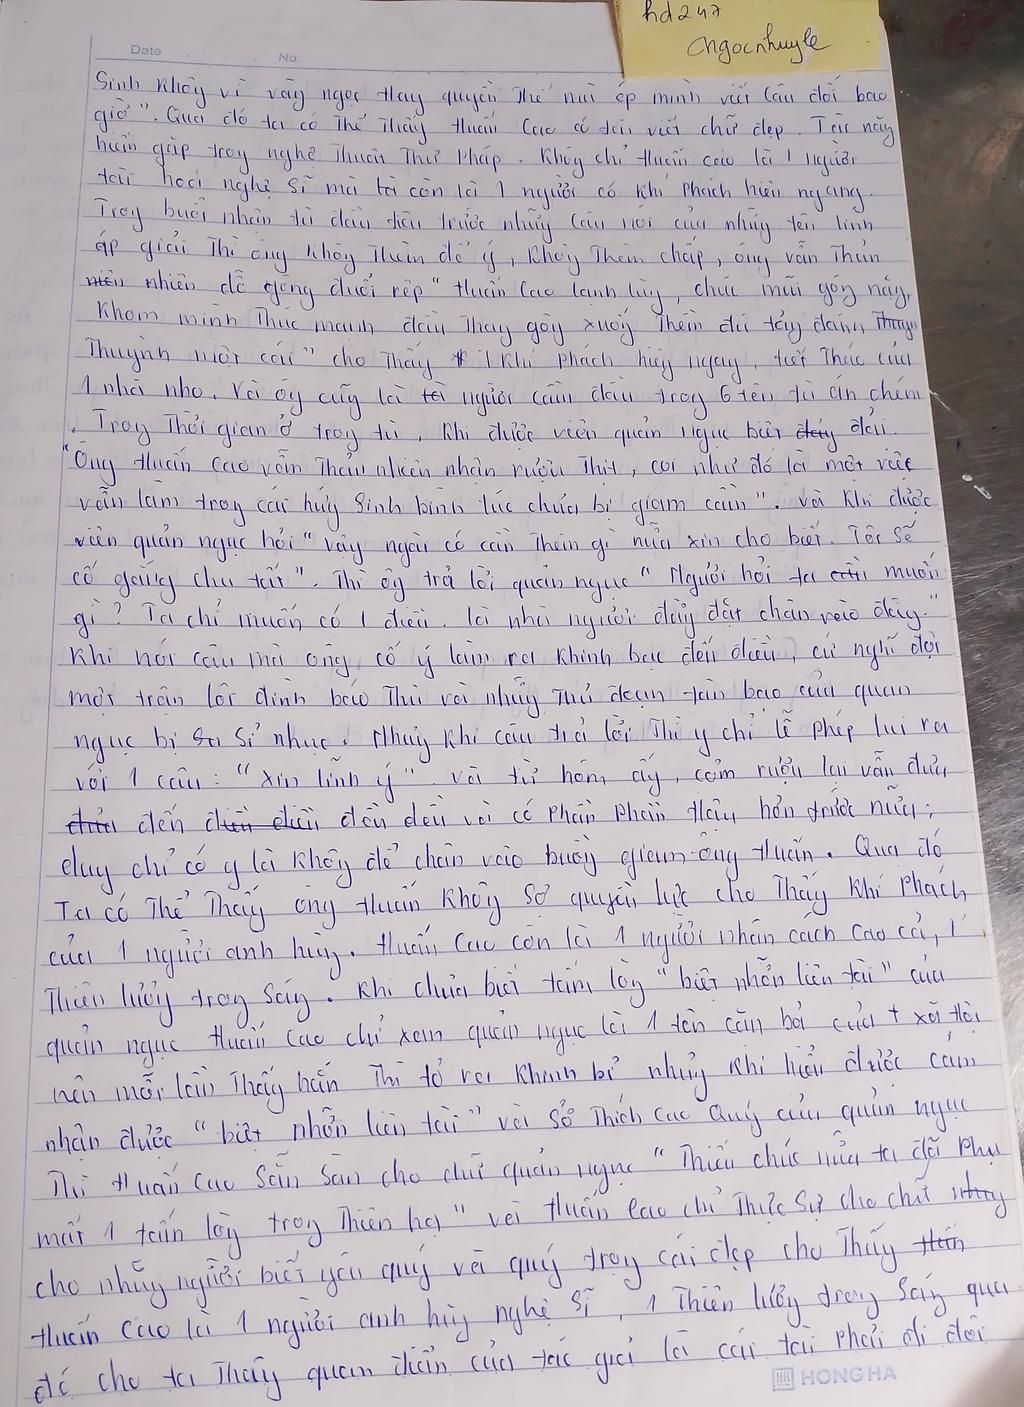 hd247
Ngocnhuyle
Date No.
Sinh không vì vàng ngọc hay quyền thế mà ép mình viết câu đối bao
giờ". Qua đó ta có thể thấy Huấn Cao có tài viết chữ đẹp. Tài này
hiếm gặp trong nghề Thuần Thư Pháp. Không chỉ Huấn cao là 1 người
tài hoa nghệ sĩ mà ta còn là 1 người có khí phách hiên ngang.
Trong buổi nhận tù đầu tiên trước những câu nói của những tên lính
áp giải Thì ông không Thèm để ý, không Thèm chấp, ông vẫn Thản
nhiên dỗ gông đuổi rệp "Huấn Cao lạnh lùng, chúc mũi gông nặng,
khom mình Thúc mạnh đầu Thang gông xuống Thềm đá tảng đánh
Thuỳnh một cái" cho Thấy 1 khí phách hiên ngang, tiết Tháo của
1 nhà nho. Và ông cũng là người cầm đầu trong 6 tên tù án chém
. Trong Thời gian ở trong tù, khi được viên quản ngục biệt đãi.
"Ông Huấn Cao vẫn Thản nhiên nhận rượu Thịt, coi như đó là một việc
vẫn làm trong cái hứng Sinh bình lúc chưa bị giam cầm". Và khi được
viên quản ngục hỏi "vậy ngài có cần Thêm gì nữa xin cho biết. Tôi sẽ
cố gắng chu tất". Thì ông trả lời quản ngục "Ngươi hỏi ta muốn
gì? Ta chỉ muốn có 1 điều. là nhà ngươi đừng đặt chân vào đây."
Khi nói câu mà ông, cố ý làm ra khinh bạc đến điều, cứ nghĩ đợi
một trận lôi đình báo Thù và những Thủ đoạn tàn bạo của quan
ngục bị sỉ nhục. Nhưng khi câu trả lời Thì y chỉ lễ phép lui ra
với 1 câu: "xin lĩnh ý". Và từ hôm ấy, cơm rượu lại vẫn đưa
đến đều đều và có phần phần hậu hơn trước nữa;
duy chỉ có y là không để chân vào buồng giam ông Huấn. Qua đó
Ta có Thể Thấy ông Huấn không sợ quyền lực cho Thấy khí phách
của 1 người anh hùng. Huấn Cao còn là 1 người nhân cách cao cả, 1
Thiên lương trong sáng. Khi chưa biết tấm lòng "biệt nhỡn liên tài" của
quản ngục Huấn Cao chỉ xem quản ngục là 1 tên cặn bã của xã hội
nên mỗi lần Thấy hắn Thì tỏ ra khinh bỉ nhưng khi hiểu được cảm
nhận được "biệt nhỡn liên tài" và sở Thích Cao Quý của quản ngục
Thì Huấn Cao sẵn sàn cho chữ quản ngục "Thiếu chút nữa ta đã phụ
mất 1 tấm lòng trong Thiên hạ" và Huấn Cao chỉ Thực sự cho chữ
cho những người biết yêu quý và quý trọng cái đẹp cho Thấy
Huấn Cao là 1 người anh hùng nghệ sĩ, 1 Thiên lương trong Sáng qua
đó cho ta Thấy quan điểm của tác giả là cái tài phải đi đôi
HONG HA